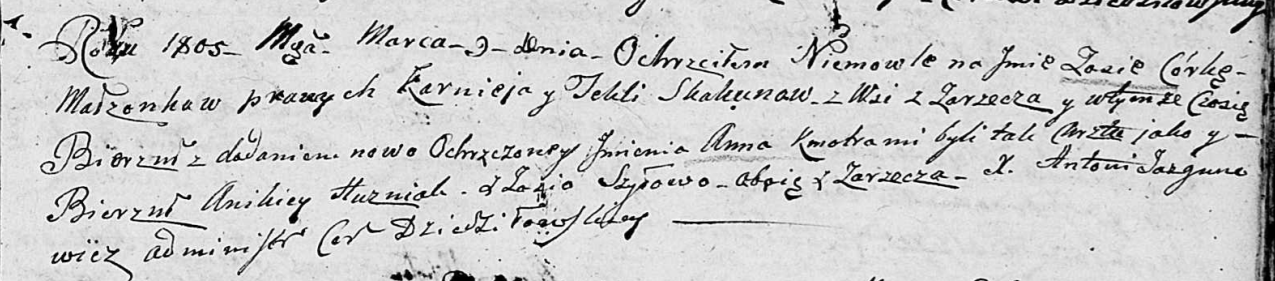 Roku 1805 Mga Marca 9 dnia Ochrzciłem Niemowlę na Jmie Zosię Córkę
Małzonkow prawych Karnieja y Tekli Skakunow z Wsi z Zarzecza y wtymze Czosię
Bierzm z dodaniem nowo Ochrzczoney Jmienia Anna Kmotrami byli tak Chrztu jako y
Bierzm Anikiey Huzniak z Zosio Szyłowo oboję z Zarzecza X. Antoni Jazguno
wicz administr Cer Dziedziłowskiey